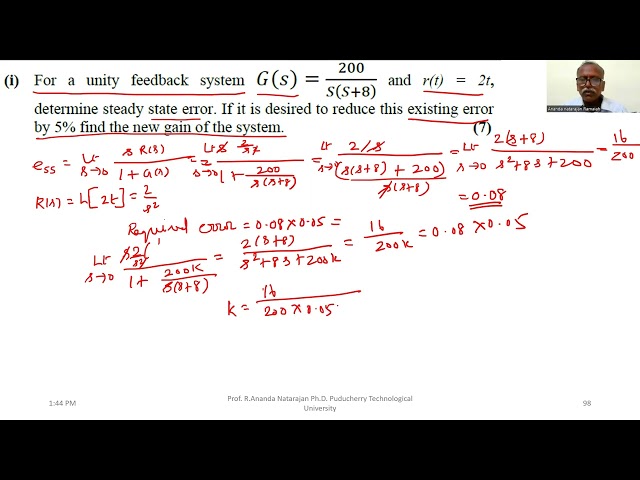 (i) For a unity feedback system G(s) = 200 / S(S+8) and r(t) = 2t,
determine steady state error. If it is desired to reduce this existing error
by 5% find the new gain of the system. (7)
Ananda natarajan Ramaiah
e_ss = Lt s→0 s R(s) / 1 + G(s) = Lt s→0 s 2/s² / 1 + 200/s(s+8) = Lt s→0 2/s / (s(s+8) + 200) / s(s+8) = Lt s→0 2(s+8) / s²+8s+200 = 16 / 200
R(s) = L[2t] = 2/s²
= 0.08
Required error = 0.08 x 0.05 =
Lt s→0 s 2/s² / 1 + 200K / s(s+8) = 2(s+8) / s²+8s+200k = 16 / 200k = 0.08 x 0.05
k = 16 / 200 x 0.05
1:44 PM
Prof. R.Ananda Natarajan Ph.D. Puducherry Technological
University
98